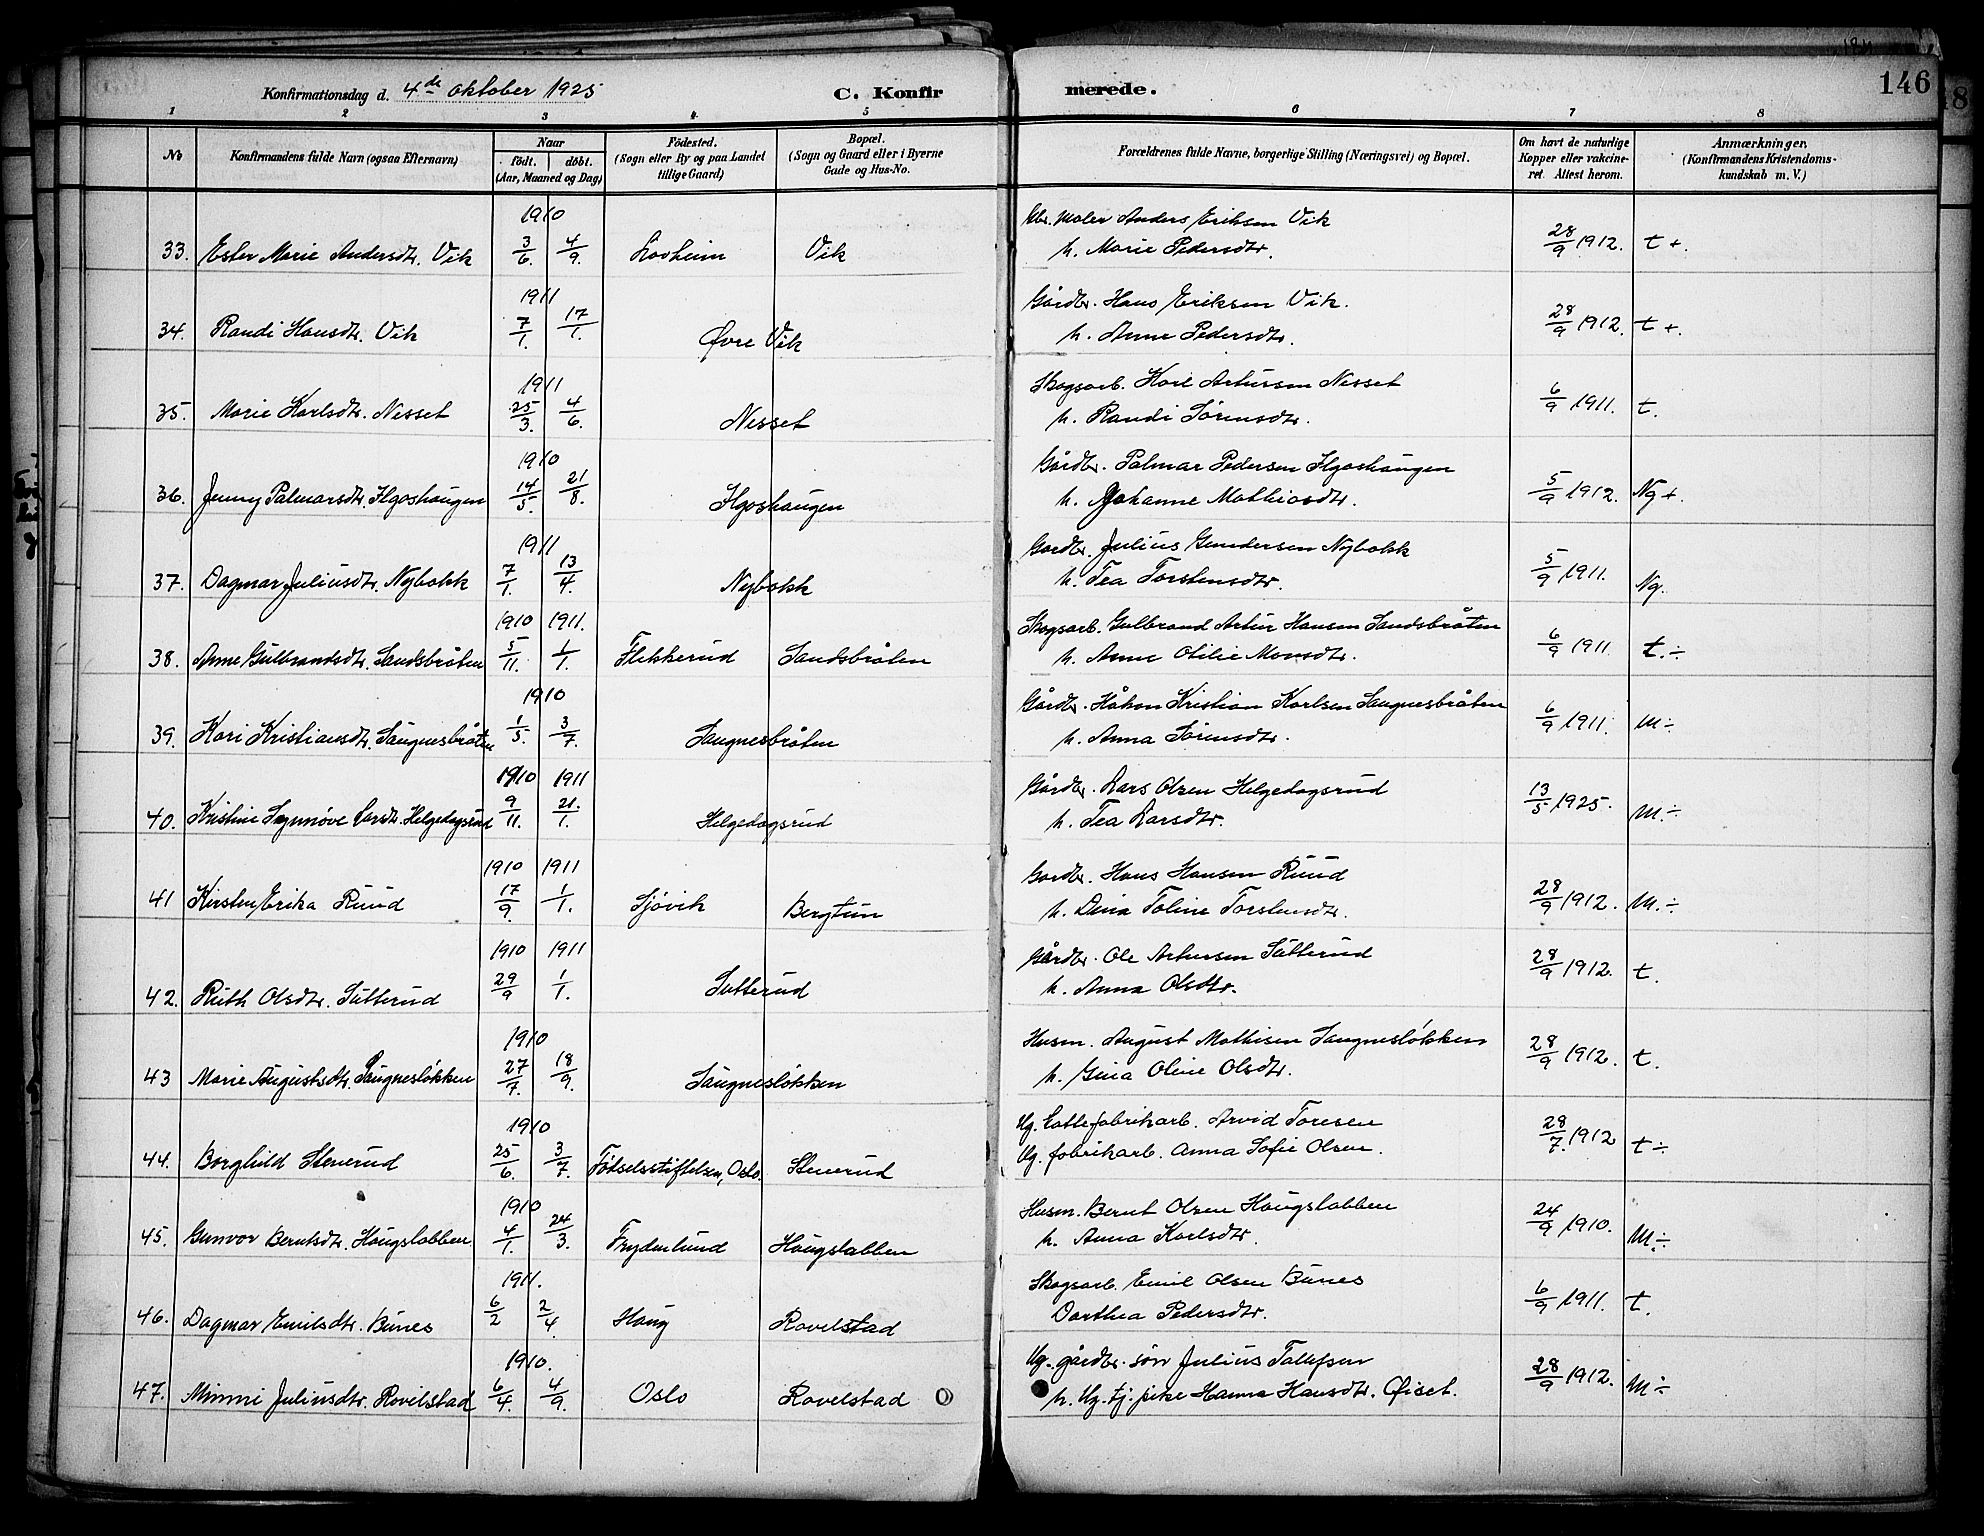 146
Konfirmationsdag d. 4de oktober 1925 C. Konfir merede.
1 2 3 4. 5 6 7 8
No Konfirmandens fulde Navn (ogsaa Efternavn) Naar født. døbt. (Aar, Maaned og Dag) Fødested. (Sogn eller By og paa Landet tillige Gaard) Bopæl. (Sogn og Gaard eller i Byerne Gade og Hus-No. Forældrenes fulde Navne, borgerlige Stilling (Næringsvei) og Bopæl. Om havt de naturlige Kopper eller vakcineret. Attest herom. Anmærkninger. (Konfirmandens Kristendomskundskab m. V.)
1910 Maler Anders Eriksen Vik
33. Ester Marie Andersdtr. Vik 3/6. 4/9. Lovheim Vik h. Marie Pedersdtr. 28/9 1912. t +.
1911 Gårdbr. Hans Eriksen Vik.
34. Randi Hansdtr. Vik 7/1. 17/1. Øvre Vik h. Anne Pedersdtr. 28/9 1912. t +.
1911 Skogsarb. Karl Artursen Nesset
35. Marie Karlsdtr. Nesset 25/3. 4/6. Nesset h. Randi Sørensdtr. 6/9 1911. t.
1910 Gårdbr. Palmar Pedersen Ilgoshaugen
36. Jenny Palmarsdtr. Ilgoshaugen 14/5. 21/8. Ilgoshaugen h. Johanne Mathiasdtr. 5/9 1912. Ng +.
1911 Gårdbr. Julius Gundersen Nybakk
37. Dagmar Juliusdtr. Nybakk 7/1. 13/4. Nybakk h. Tea Torstensdtr. 5/9 1911. Ng.
1910 1911. Skogsarb. Gulbrand Artur Hansen Sandsbråten
38. Anne Gulbrandsdtr. Sandsbråten 5/11. 1/1. Flekkerud Sandsbråten h. Anne Otilie Monsdtr. 6/9 1911 t. ÷
1910 Gårdbr. Håkon Kristian Karlsen Saugnesbråten
39. Kari Kristiansdtr. Saugnesbråten 1/5. 3/7. Saugnesbråten h. Anna Sørensdtr. 6/9 1911. M ÷
1910 1911 Gårdbr. Lars Olsen Helgedagsrud
40. Kristine Synnøve Larsdtr. Helgedagsrud 9/11. 21./1. Helgedagsrud h. Tea Larsdtr. 13/5 1925. M. ÷
1910 1911 Gårdbr. Hans Hansen Ruud
41 Kirsten Erika Ruud 17/9. 1/1. Sjøvik Bergtun h. Dina Toline Torstensdtr. 28/9 1912. M. ÷
1910 1911 Gårdbr. Ole Artursen Sutterud
42. Ruth Olsdtr. Sutterud 29/9 1/1. Sutterud h. Anna Olsdtr. 28/9 1912. t.
1910 Husm. August Mathisen Saugnesløkken
43 Marie Augustsdtr. Saugnesløkken 27/7. 18/9. Saugnesløkken h. Gina Oline Olsdtr. 28/9 1912. t.
1910 Ug. fabrikarb. Arvid Toresen
44. Borghild Stenerud 25/6. 3/7. Fødselsstiftelsen, Oslo. Stenerud Ug. fabrikarb. Anna Sofie Olsen. 28/7. 1912 t ÷
1910 Husm. Bernt Olsen Haugslabben
45. Gunvor Berntsdtr. Haugslabben 4/1. 24/3. Frydenlund Haugslabben h. Anna Karlsdtr. 24/9 1910. M. ÷
1911. Skogsarb. Emil Olsen Bunes
46. Dagmar Emilsdtr. Bunes 6/2 2/4. Haug Ravelstad Dorthea Pedersdtr. 6/9 1911. t.
1910. Ug. gårdbr. søn Julius Tollefsen
47. Mimmi Juliusdtr. Rovelstad 6/4. 4/9. Oslo Rovelstad O h. Ug. tj. pike Hanna Hansdtr. Øiset. 28/9 1912. M ÷